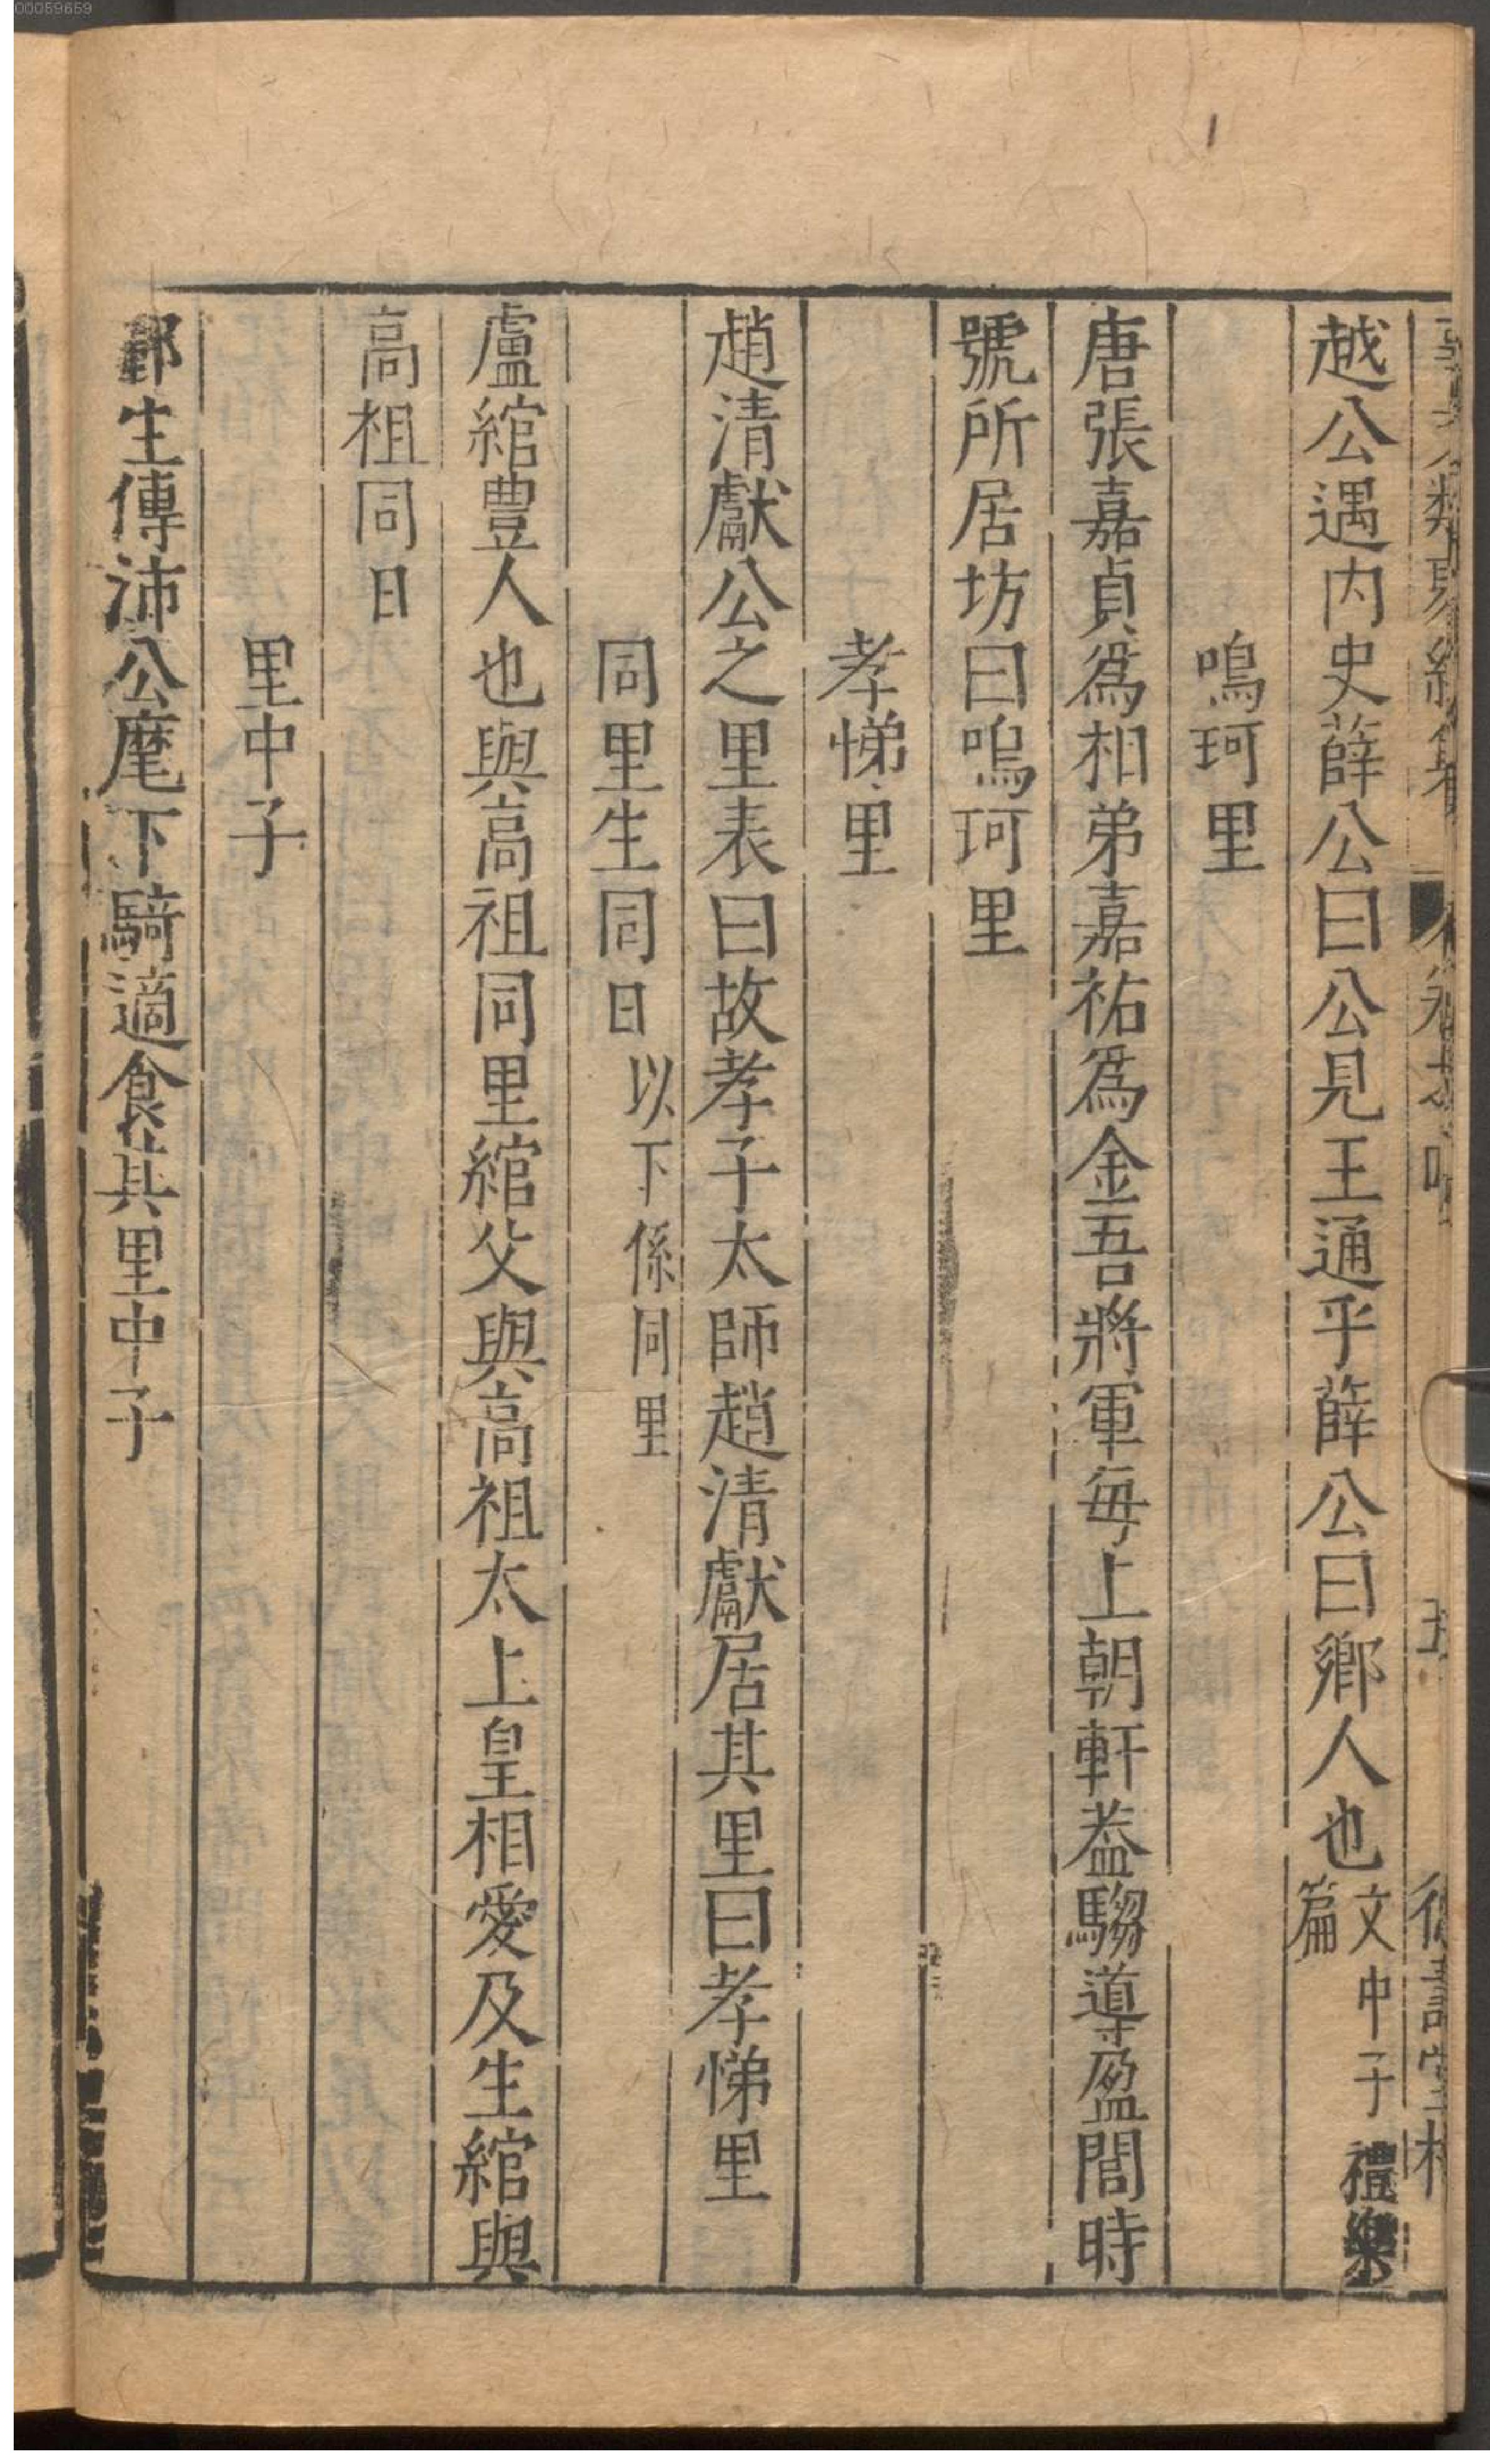 00059659
越公遇内史薛公曰公見王通乎薛公曰鄉人也文中子禮樂篇
鳴珂里
唐張嘉貞爲相弟嘉祐爲金吾將軍每上朝軒葢騶導盈閭時
號所居坊曰鳴珂里
孝悌里
趙清獻公之里表曰故孝子太師趙清獻居其里曰孝悌里
同里生同日以下係同里
盧綰豊人也與高祖同里綰父與高祖太上皇相愛及生綰與
高祖同日
里中子
酈生傳沛公麾下騎適食其里中子